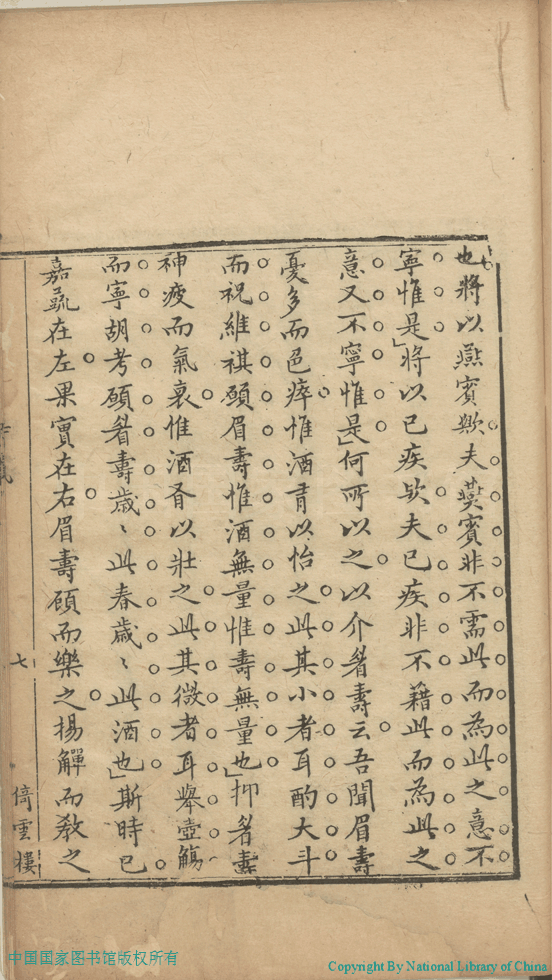 也將以燕賓歟夫燕賓非不需此而為此之意不
寧惟是」將以已疾歟夫已疾非不藉此而為此之
意又不寧惟是」何所以之以介眉壽云吾聞眉壽
憂多而色瘁惟酒有以怡之此其小者耳酌大斗
而祝維祺頋眉壽惟酒無量惟壽無量也」抑眉壽
神疲而氣衰惟酒有以壯之此其微者耳舉壺觴
而寧胡考頋眉壽歲〻此春歲〻此酒也」斯時已
嘉蔬在左果實在右眉壽頋而樂之揚觶而教之
七
倚雲樓
中国国家图书馆版权所有
Copyright By National Library of China